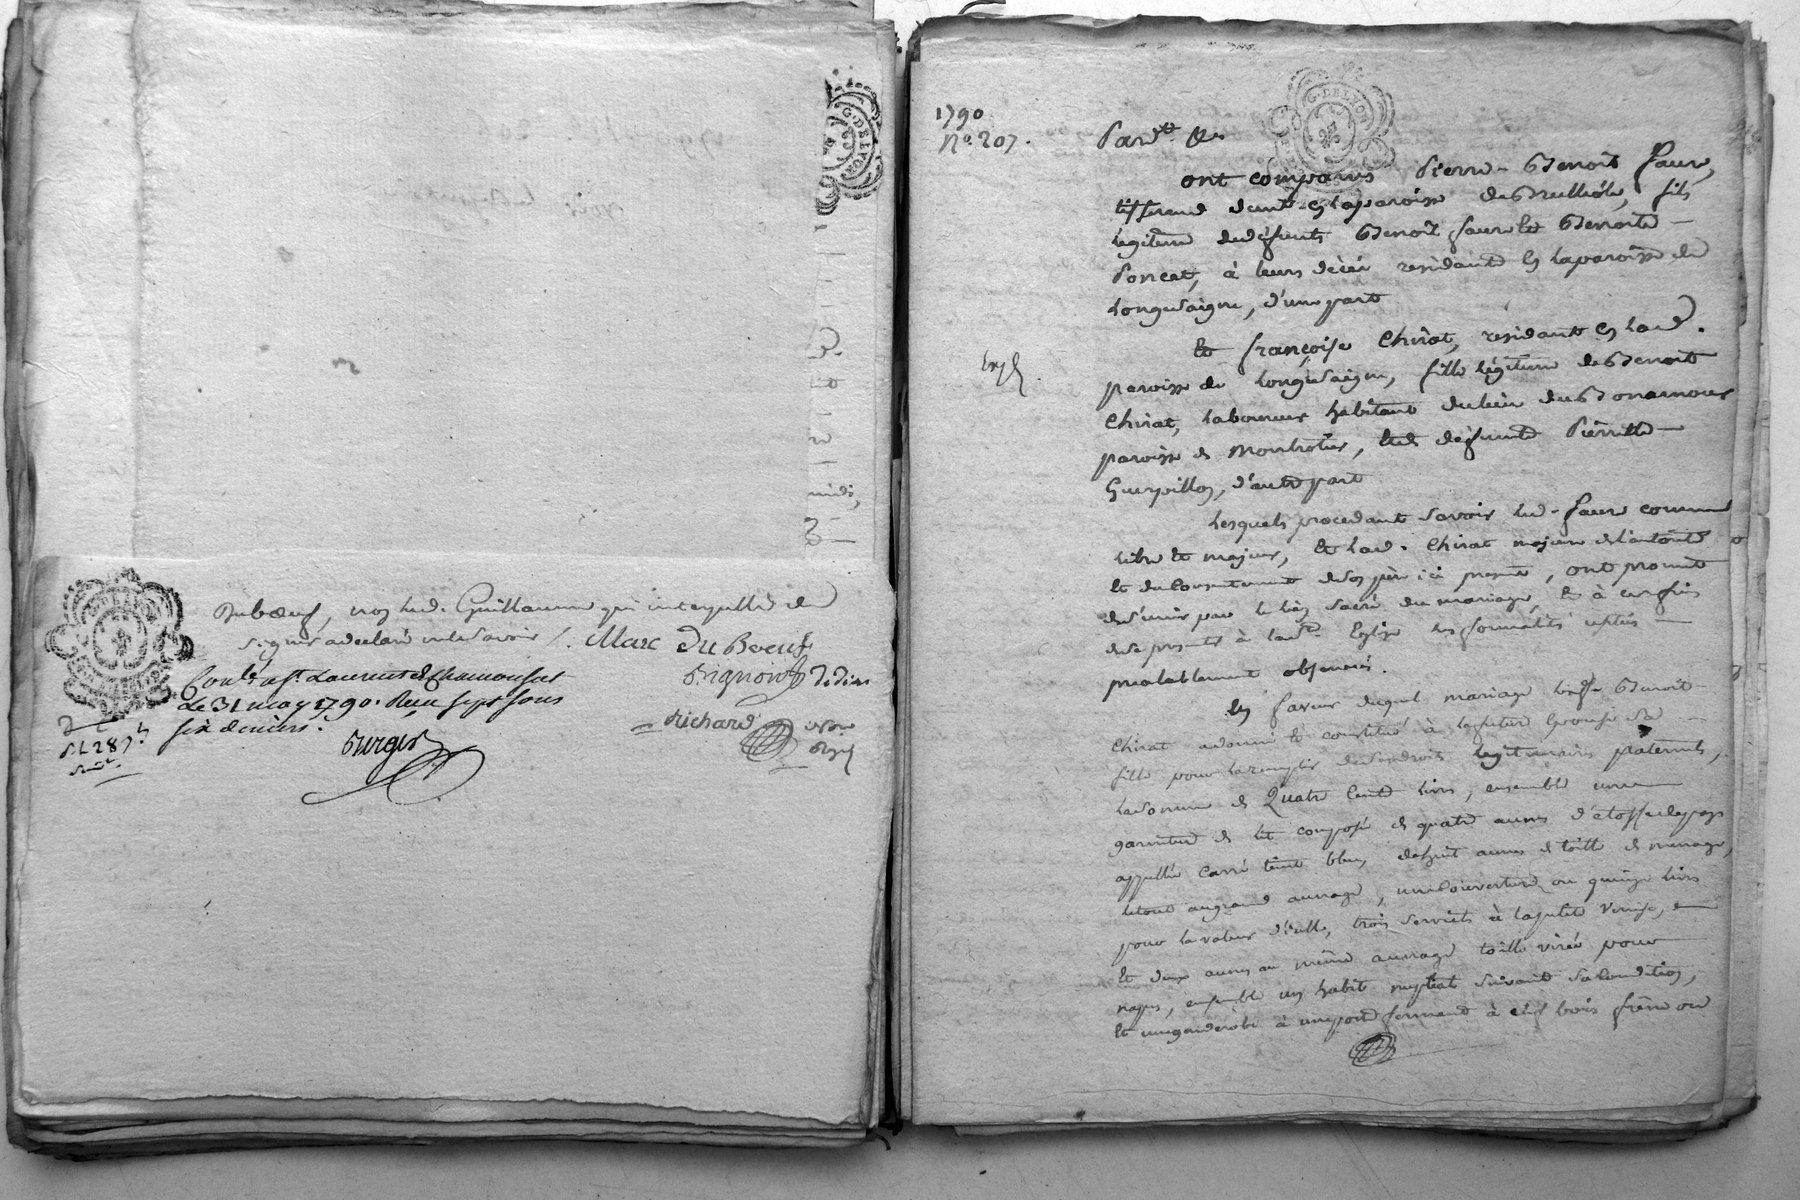 G. DE LYON
midi,
G. DE LYON
Duboeuf, non led. Guillaume qui interpellé de
signer a déclaré ne le savoir /. Marc du Boeuf
Pignard Didier
Conlé à St. Laurent de Chamousset
le 31 may 1790. Reçu sept sous
six deniers.
Richard nore
Purger
1790
No. 207.
G. DE LYON
Pardt. &a
ont comparus Pierre-Benoît faure,
tisserand demt. en la paroisse de Brulliole, fils
légitime de défunts Benoît faure et Benoite
Poncet, à leurs décès residants en la paroisse de
Longesaigne, d'une part
Et françoise Chirat, residante en lad.
paroisse de Longesaigne, fille légitime de Benoit
Chirat, laboureur habitant du lieu du Bonamour
paroisse de Montrotier, et de défunte Pierrette
Guerpillon, d'autre part
Lesquels procedant savoir led. faure comme
libre et majeur, et lad. Chirat majeure de l'autorité
et du consentement de son père ici présent, ont promit
de s'unir par le lien sacré du mariage, et à ces fins
de se presenter à lad. Eglise les formalités
préalablement observées.
En faveur duquel mariage led. Benoit
Chirat a donné et constitué à la future épouse sa
fille pour la remplir de ses droits légitimaires paternels,
la somme de Quatre Cent livres, ensemble une
garniture de lit composée de quatre aunes d'étoffe de pays
appellée Carré teint bleu, de huit aunes de toille de menage,
le tout au grand aunage, une Couverture ou quinze livres
pour la valeur d'icelle, trois serviettes à la petite Venise,
et deux aunes au même aunage toille virée pour
nappes, ensemble un habit nuptial suivant sa condition,
et une garderobe à une porte fermant à clef bois frêne ou